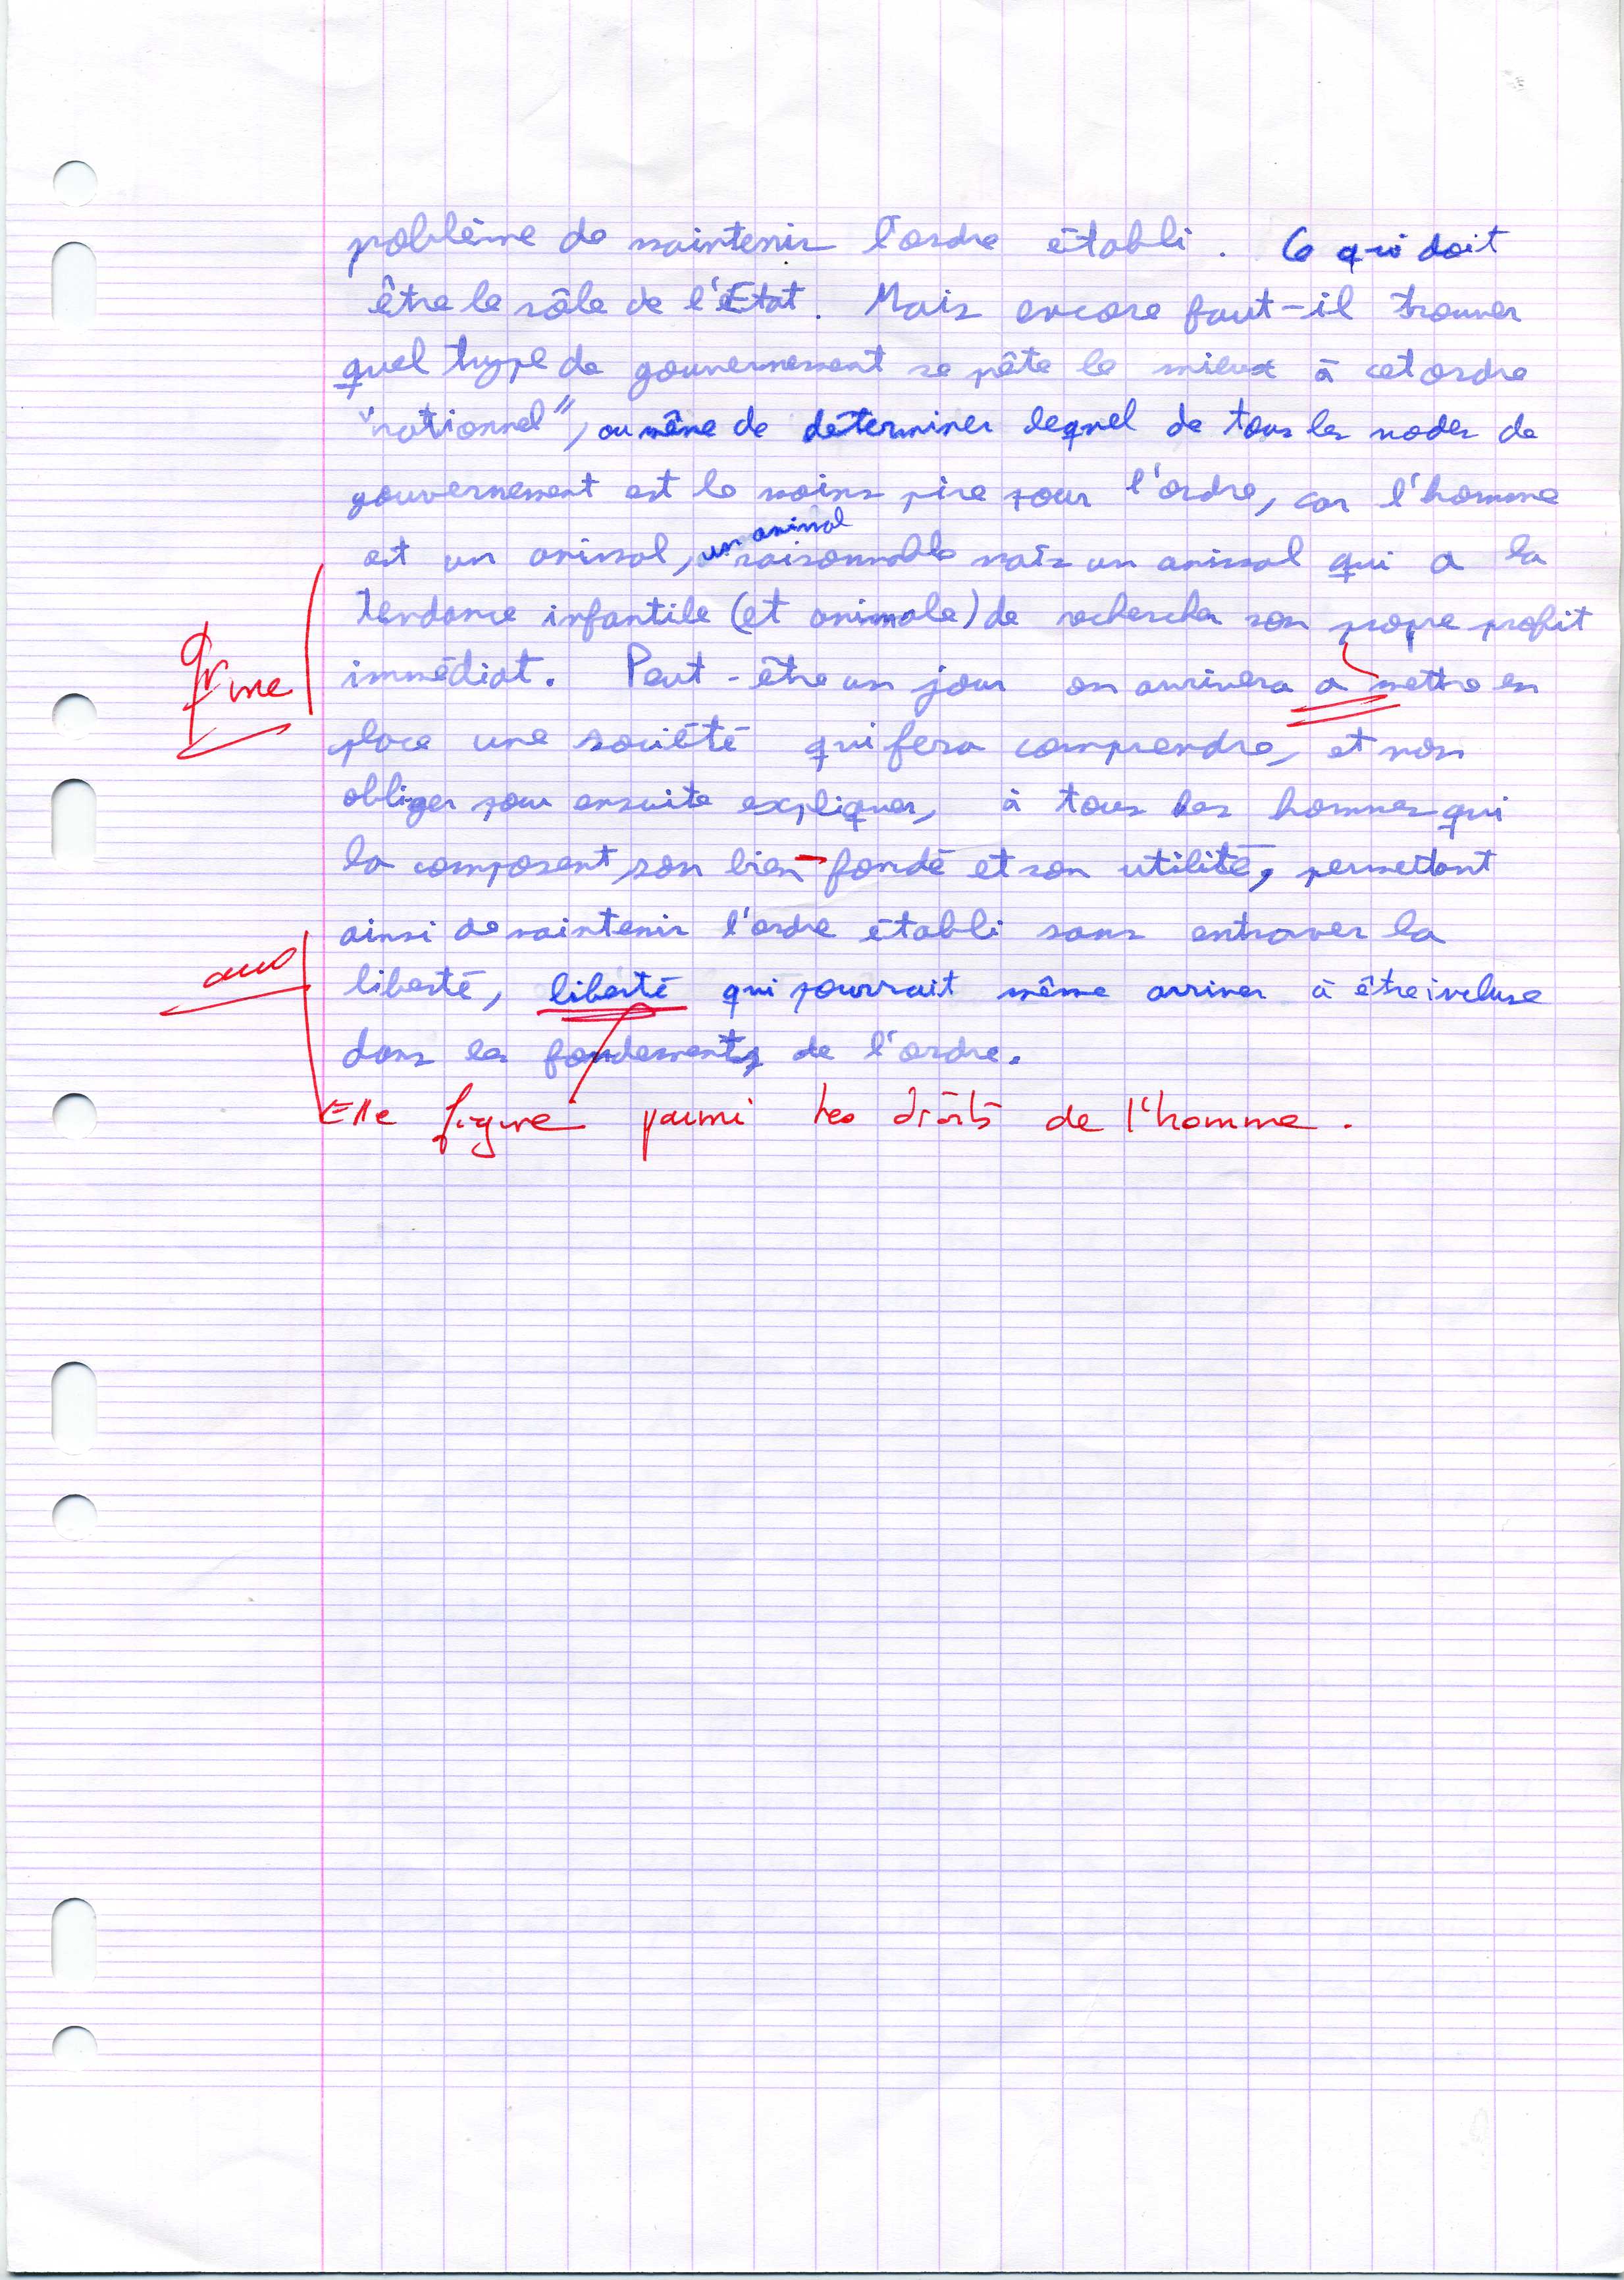 problème de maintenir l'ordre établi. Ce qui doit
être le rôle de l'Etat. Mais encore faut-il trouver
quel type de gouvernement se prête le mieux à cet ordre
"nationnel", ou même de déterminer lequel de tous les modes de
gouvernement est le moins pire pour l'ordre, car l'homme
un animal
est un animal, raisonnable mais un animal qui a la
tendance infantile (et animale) de rechercher son propre profit
immédiat. Peut-être un jour on arrivera a mettre en
place une société qui fera comprendre, et non
obliger pour ensuite expliquer, à tous les hommes qui
la composent, son bien-fondé et son utilité, permettant
ainsi de maintenir l'ordre établi sans entraver la
liberté, liberté qui pourrait même arriver à être incluse
dans les fondements de l'ordre.
Elle figure parmi les droits de l'homme.